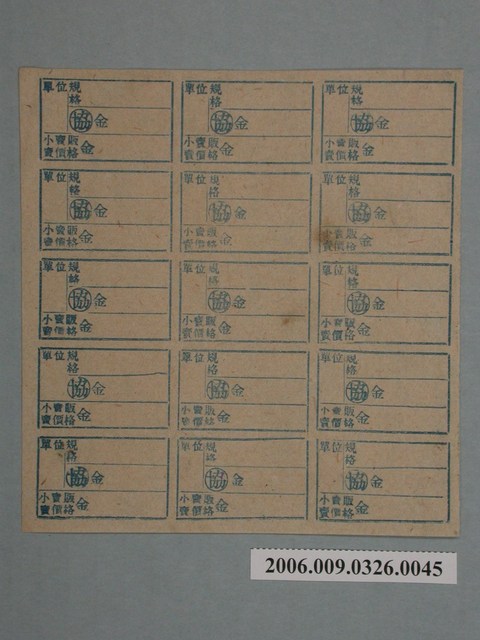 單位規格
協金
小賣販賣價格金
單位規格
協金
小賣販賣價格金
單位規格
協金
小賣販賣價格金
單位規格
協金
小賣販賣價格金
單位規格
協金
小賣販賣價格金
單位規格
協金
小賣販賣價格金
單位規格
協金
小賣販賣價格金
單位規格
協金
小賣販賣價格金
單位規格
協金
小賣販賣價格金
單位規格
協金
小賣販賣價格金
單位規格
協金
小賣販賣價格金
單位規格
協金
小賣販賣價格金
單位規格
協金
小賣販賣價格金
單位規格
協金
小賣販賣價格金
單位規格
協金
小賣販賣價格金
2006.009.0326.0045